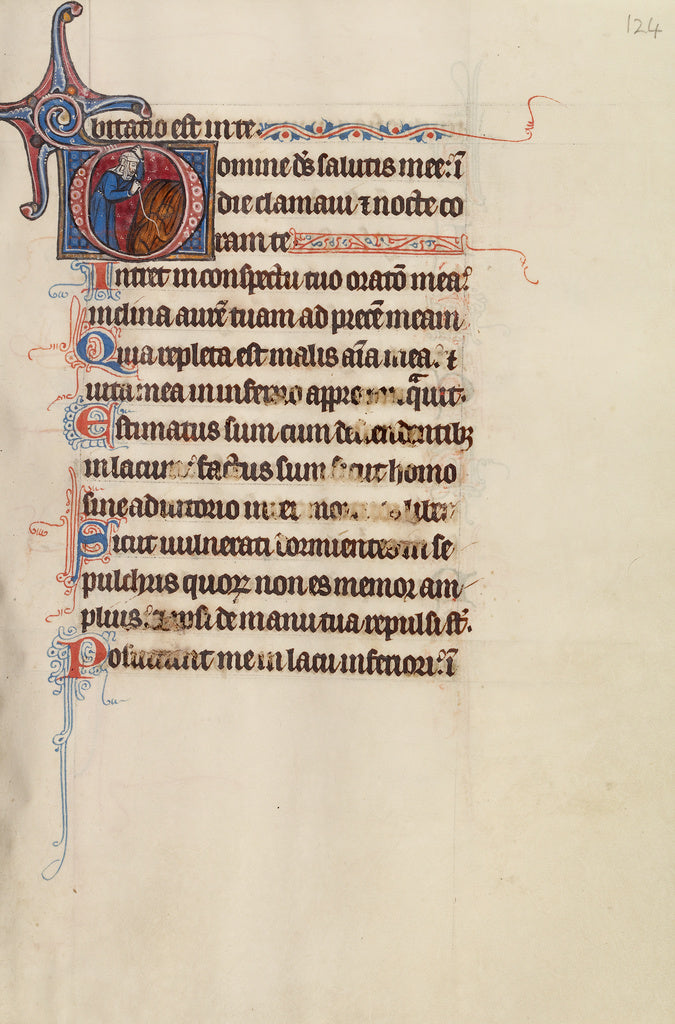 124
bitatio est in te.
Domine ds̄ salutis mee: ī
die clamaui ⁊ nocte co
ram te
Intret in conspectu tuo orato᷒ mea:
inclina aurē tuam ad precē meam
Quia repleta est malis aīa mea: ⁊
uita mea in inferno
Estimatus sum cum
in lacum: factus sum sicut homo
sine adiutorio inter liber
Sicut uulnerati dormientes in se
pulchris quoꝝ non es memor am
plius: ⁊ ipsi de manu tua repulsi st̄.
Posuerunt me in lacu inferiori: ī